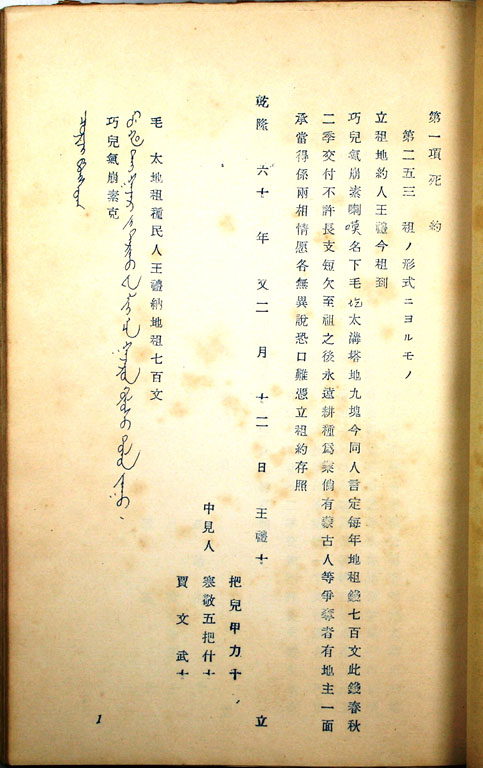 第一項 死約
第二五三 祖ノ形式ニヨルモノ
立祖地約人王禮今祖到
巧兒氣崩素喇嘆名下毛圪太溝塔地九塊今同人言定每年地祖錢七百文此錢春秋
二季交付不許長支短欠至祖之後永遠耕種爲業倘有蒙古人等爭奪者有地主一面
承當得係兩相情愿各無異說恐口難憑立祖約存照
乾隆六十年又二月十二日 王禮十 立
把兒甲力十
中見人 寨敬五把什十
賈文武十
毛 太地祖種民人王禮納地祖七百文
巧兒氣崩素克
1